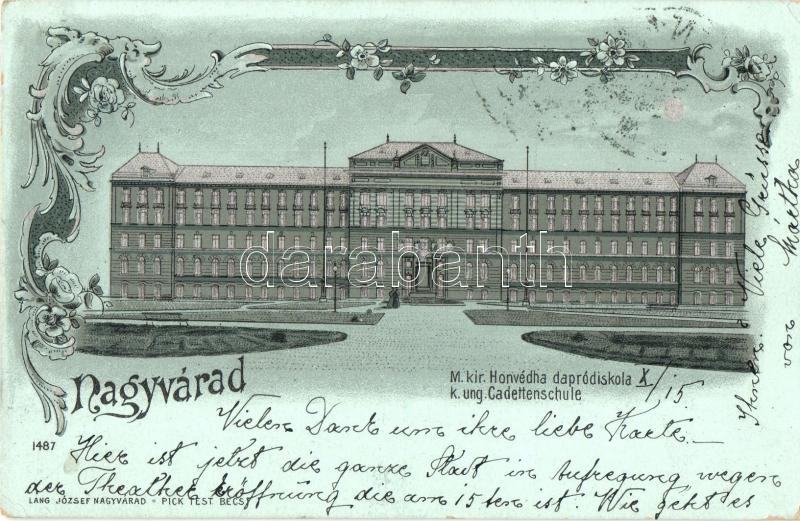 darabanth
Nagyvárad
M. kir. Honvédha dapródiskola X/15
k. ung. Cadettenschule
1487
Vielen Dank um ihre liebe Karte.
Hier ist jetzt die ganze Stadt in Aufregung wegen
der Theather Eröffnung die am 15ten ist. Wie geht es
Ihnen? Viele Grüsse
von Mártha
LANG JÓZSEF NAGYVÁRAD - PICK TEST. BÉCS